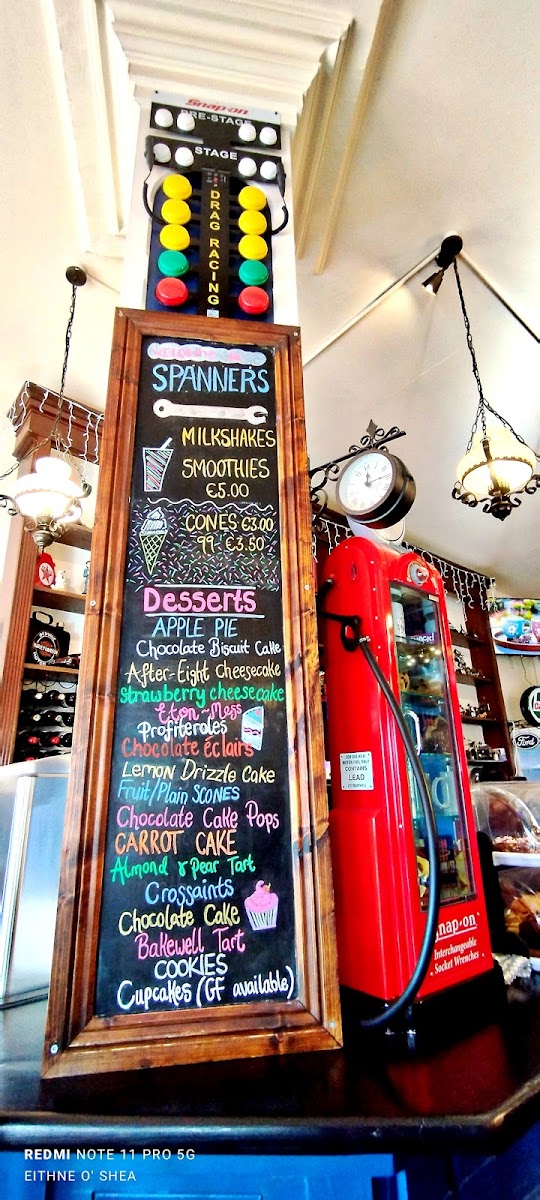 Snap-on
PRE-STAGE
STAGE
DRAG RACING
WELCOME TO
SPANNERS
MILKSHAKES
SMOOTHIES
€5.00
CONES €3.00
99 €3.50
Desserts
APPLE PIE
Chocolate Biscuit Cake
After-Eight Cheesecake
Strawberry cheesecake
Eton-Mess
Profiteroles
Chocolate éclairs
Lemon Drizzle Cake
Fruit/Plain SCONES
Chocolate Cake Pops
CARROT CAKE
Almond & Pear Tart
Crossaints
Chocolate Cake
Bakewell Tart
COOKIES
Cupcakes (GF available)
CONTAINS
LEAD
Snap-on
Interchangeable
Socket Wrenches
Ford
REDMI NOTE 11 PRO 5G
EITHNE O' SHEA